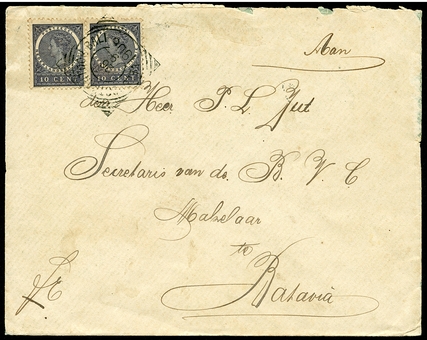 10 CENT 10 CENT
Aan
den Heer P. L. Zut
Secretaris van de B. V. C
Makelaar
te
Batavia